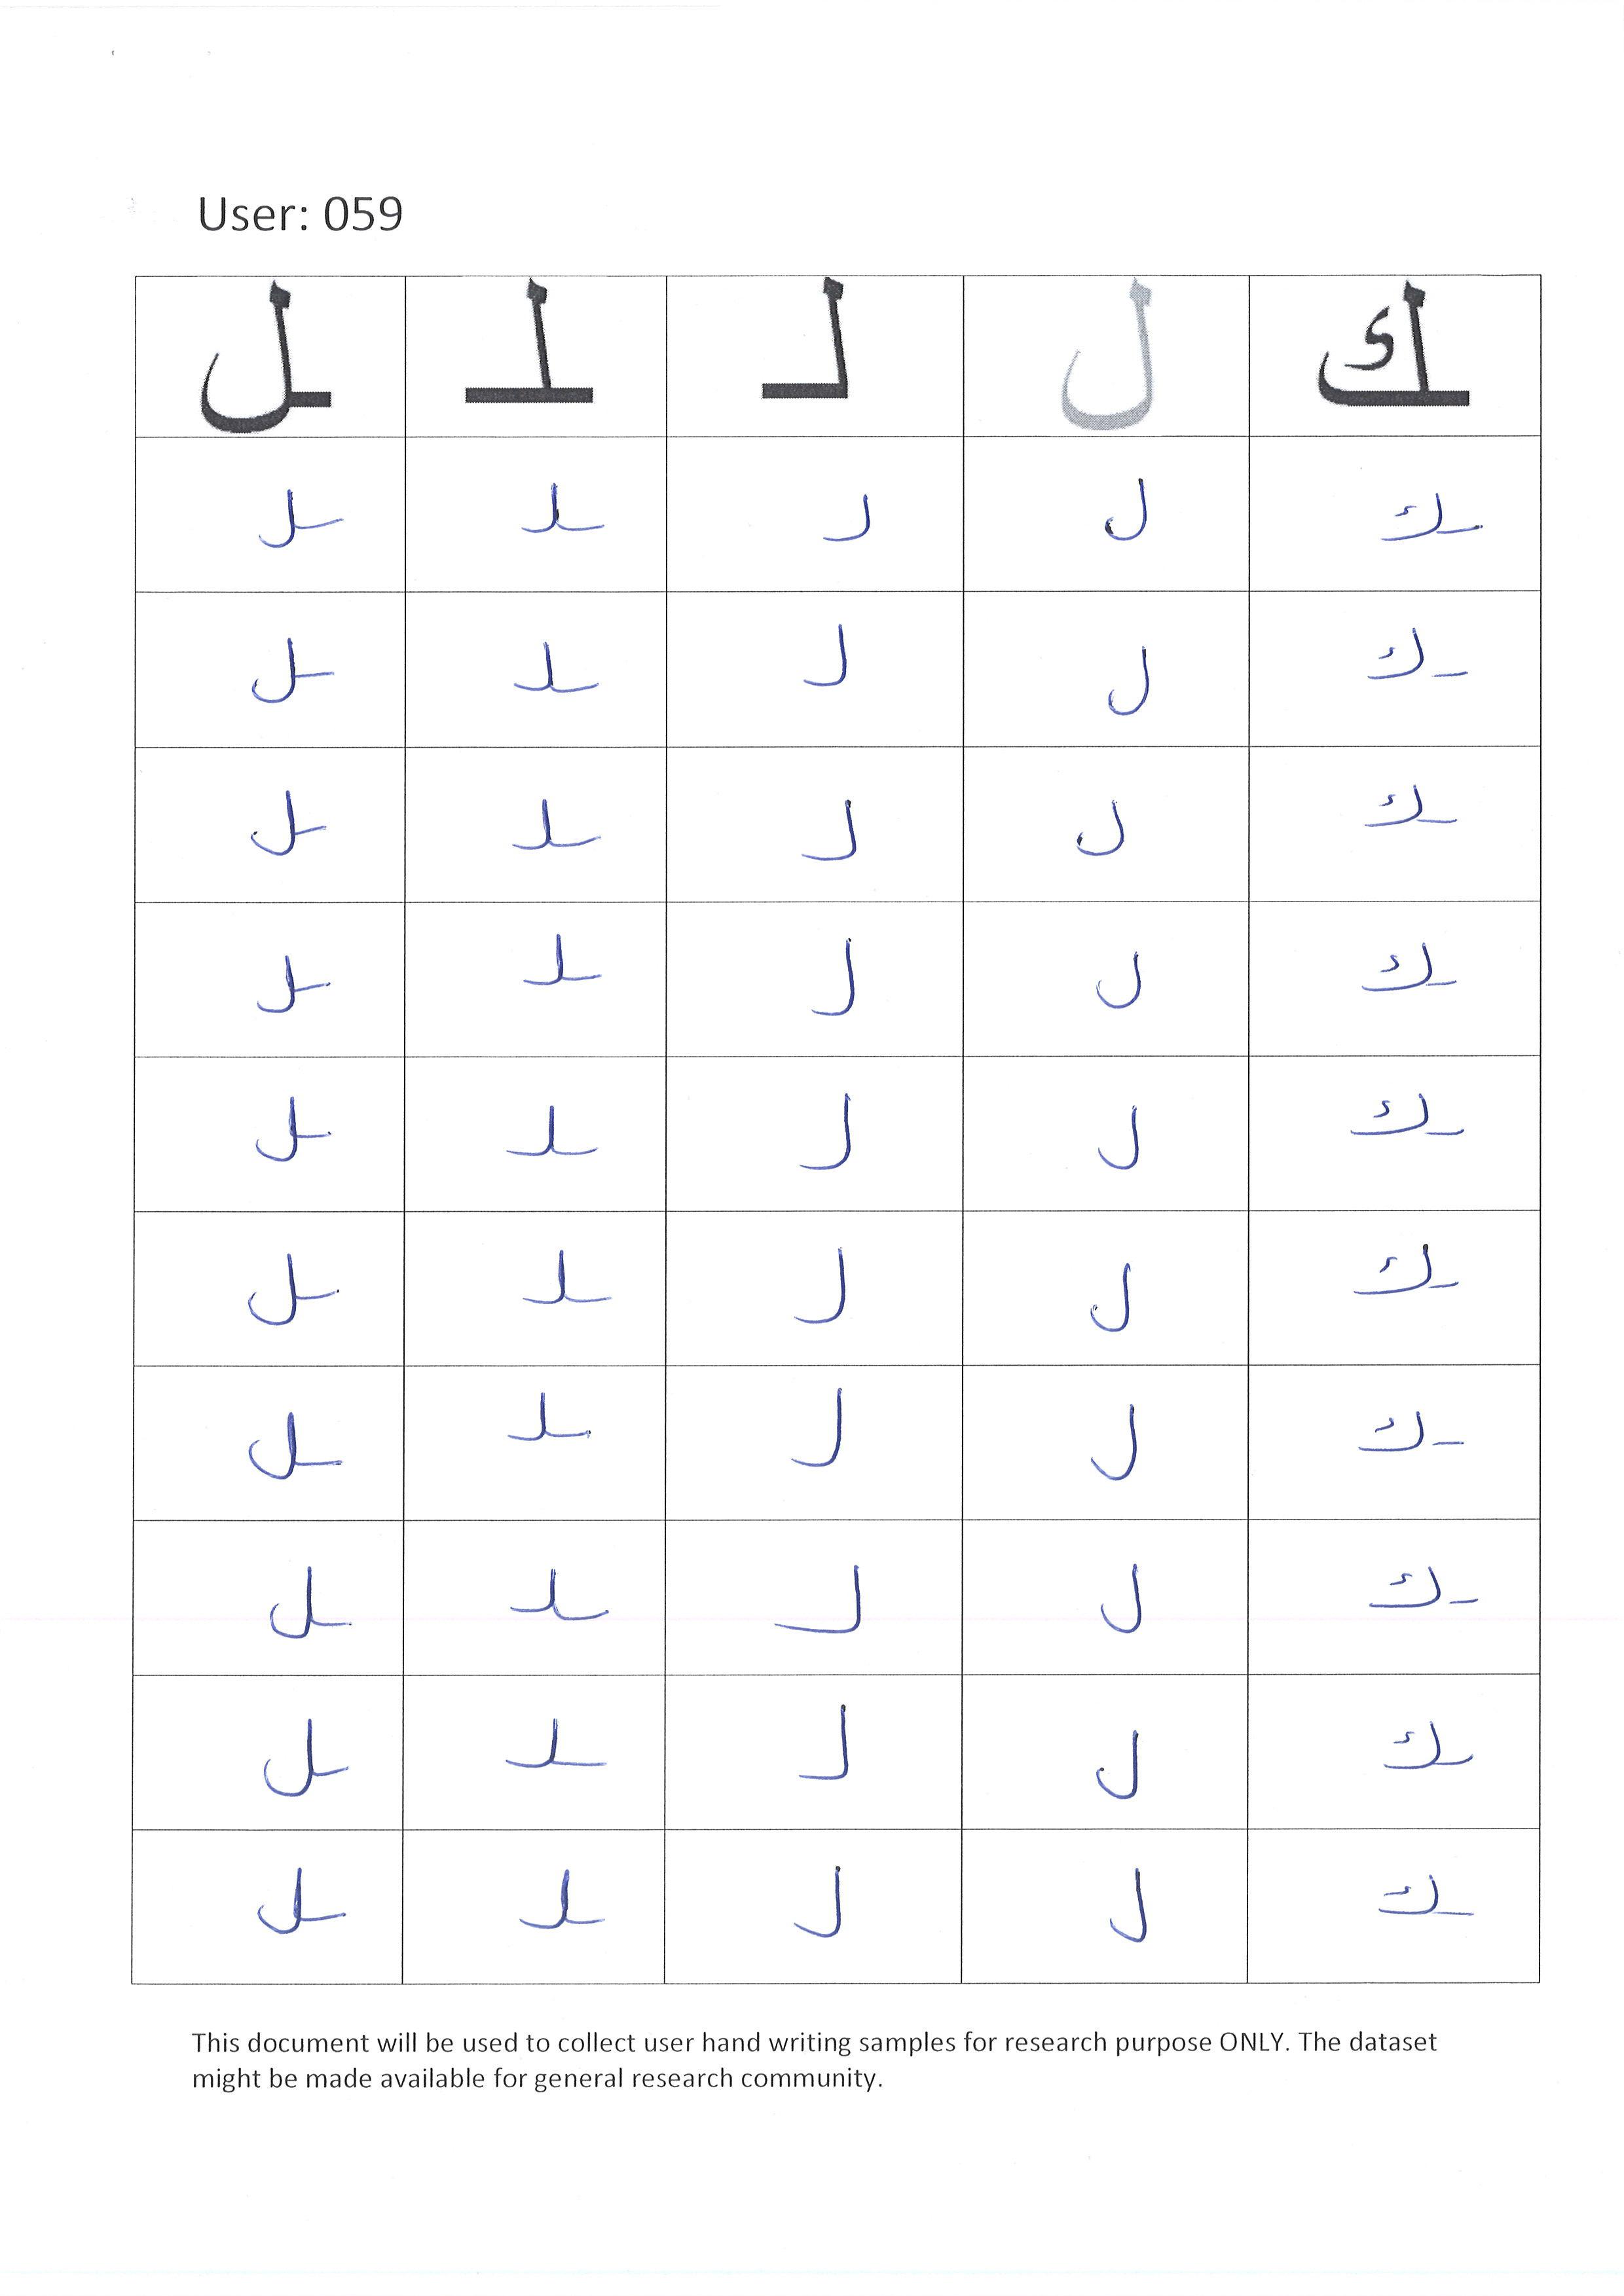 User: 059
ك ل لـ ـلـ ـل
ـك ل لـ ـلـ ـل
ـك ل لـ ـلـ ـل
ـك ل لـ ـلـ ـل
ـك ل لـ ـلـ ـل
ـك ل لـ ـلـ ـل
ـك ل لـ ـلـ ـل
ـك ل لـ ـلـ ـل
ـك ل لـ ـلـ ـل
ـك ل لـ ـلـ ـل
ـك ل لـ ـلـ ـل
This document will be used to collect user hand writing samples for research purpose ONLY. The dataset
might be made available for general research community.